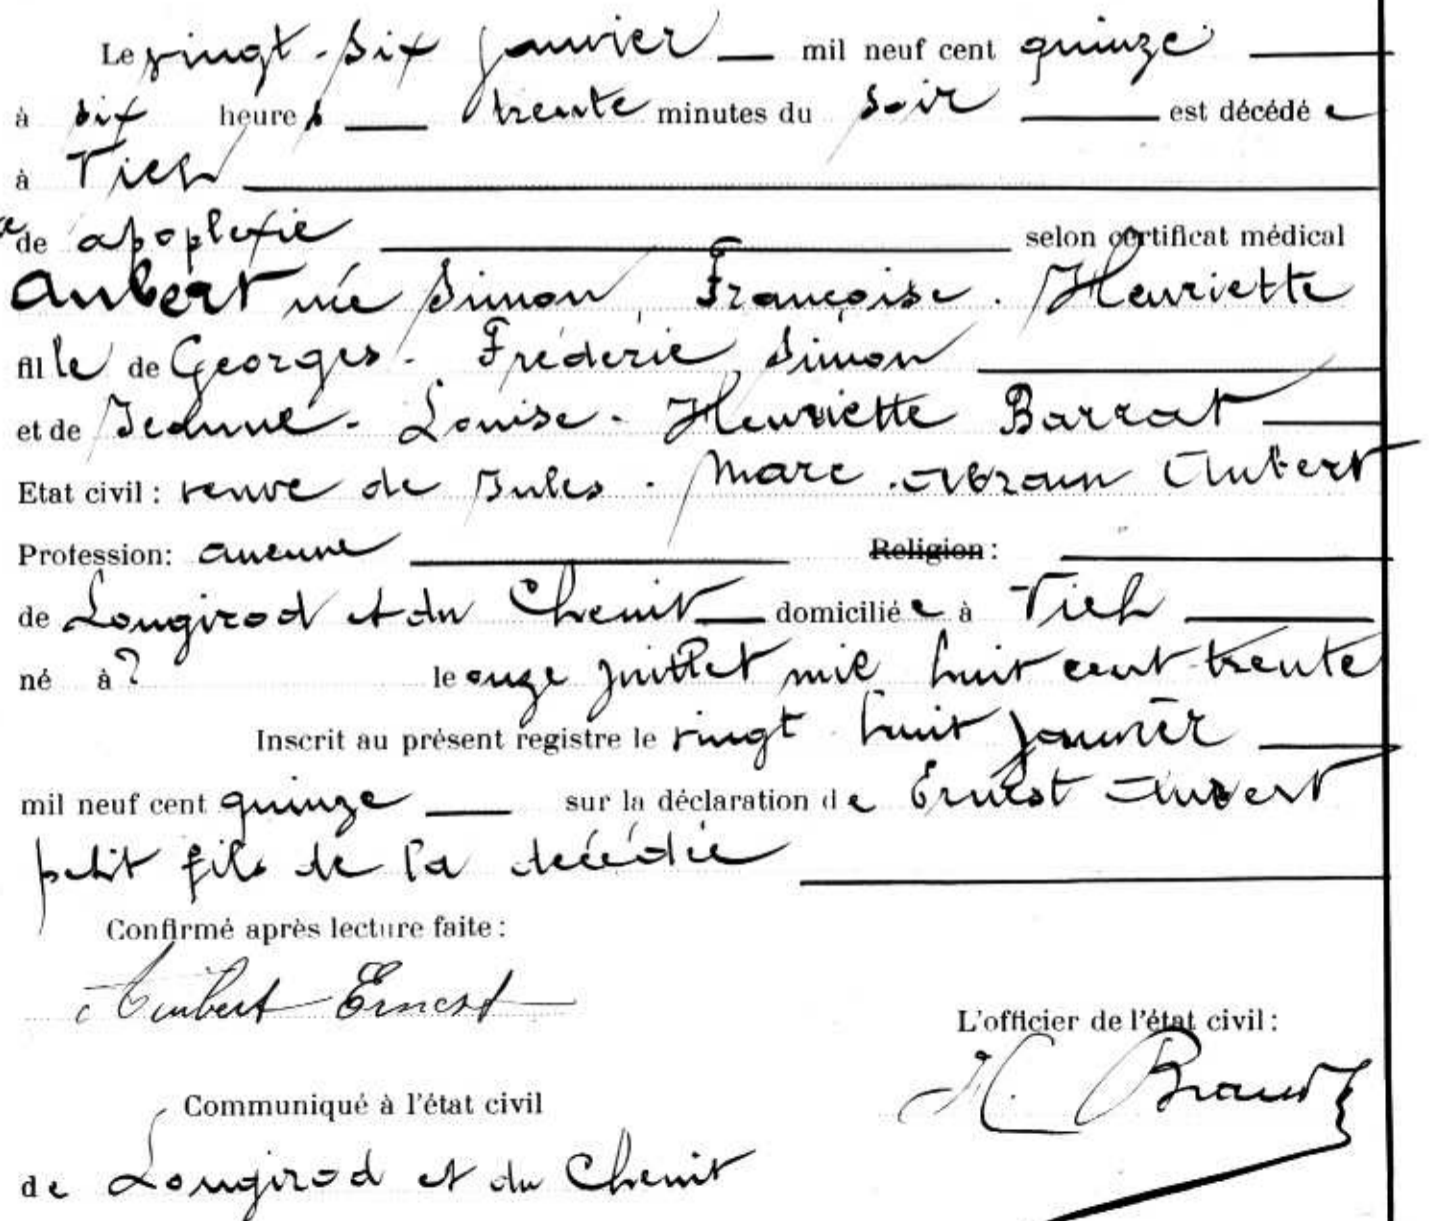 Le vingt-six janvier — mil neuf cent quinze —
à six heures — trente minutes du soir — est décédée
à Vich —
de apoplexie — selon certificat médical
Aubert née Simon Françoise-Henriette
fille de Georges-Fréderic Simon —
et de Jeanne-Louise-Henriette Barrat —
Etat civil: veuve de Jules-Marc-Abram Aubert
Profession: aucune — Religion: —
de Longirod et du Chenit — domiciliée à Vich —
né à ? le onze juillet mil huit cent trente
Inscrit au présent registre le vingt huit janvier —
mil neuf cent quinze — sur la déclaration de Ernest Aubert
petit fils de la décédée —
Confirmé après lecture faite:
Aubert Ernest
L'officier de l'état civil:
Communiqué à l'état civil
de Longirod et du Chenit